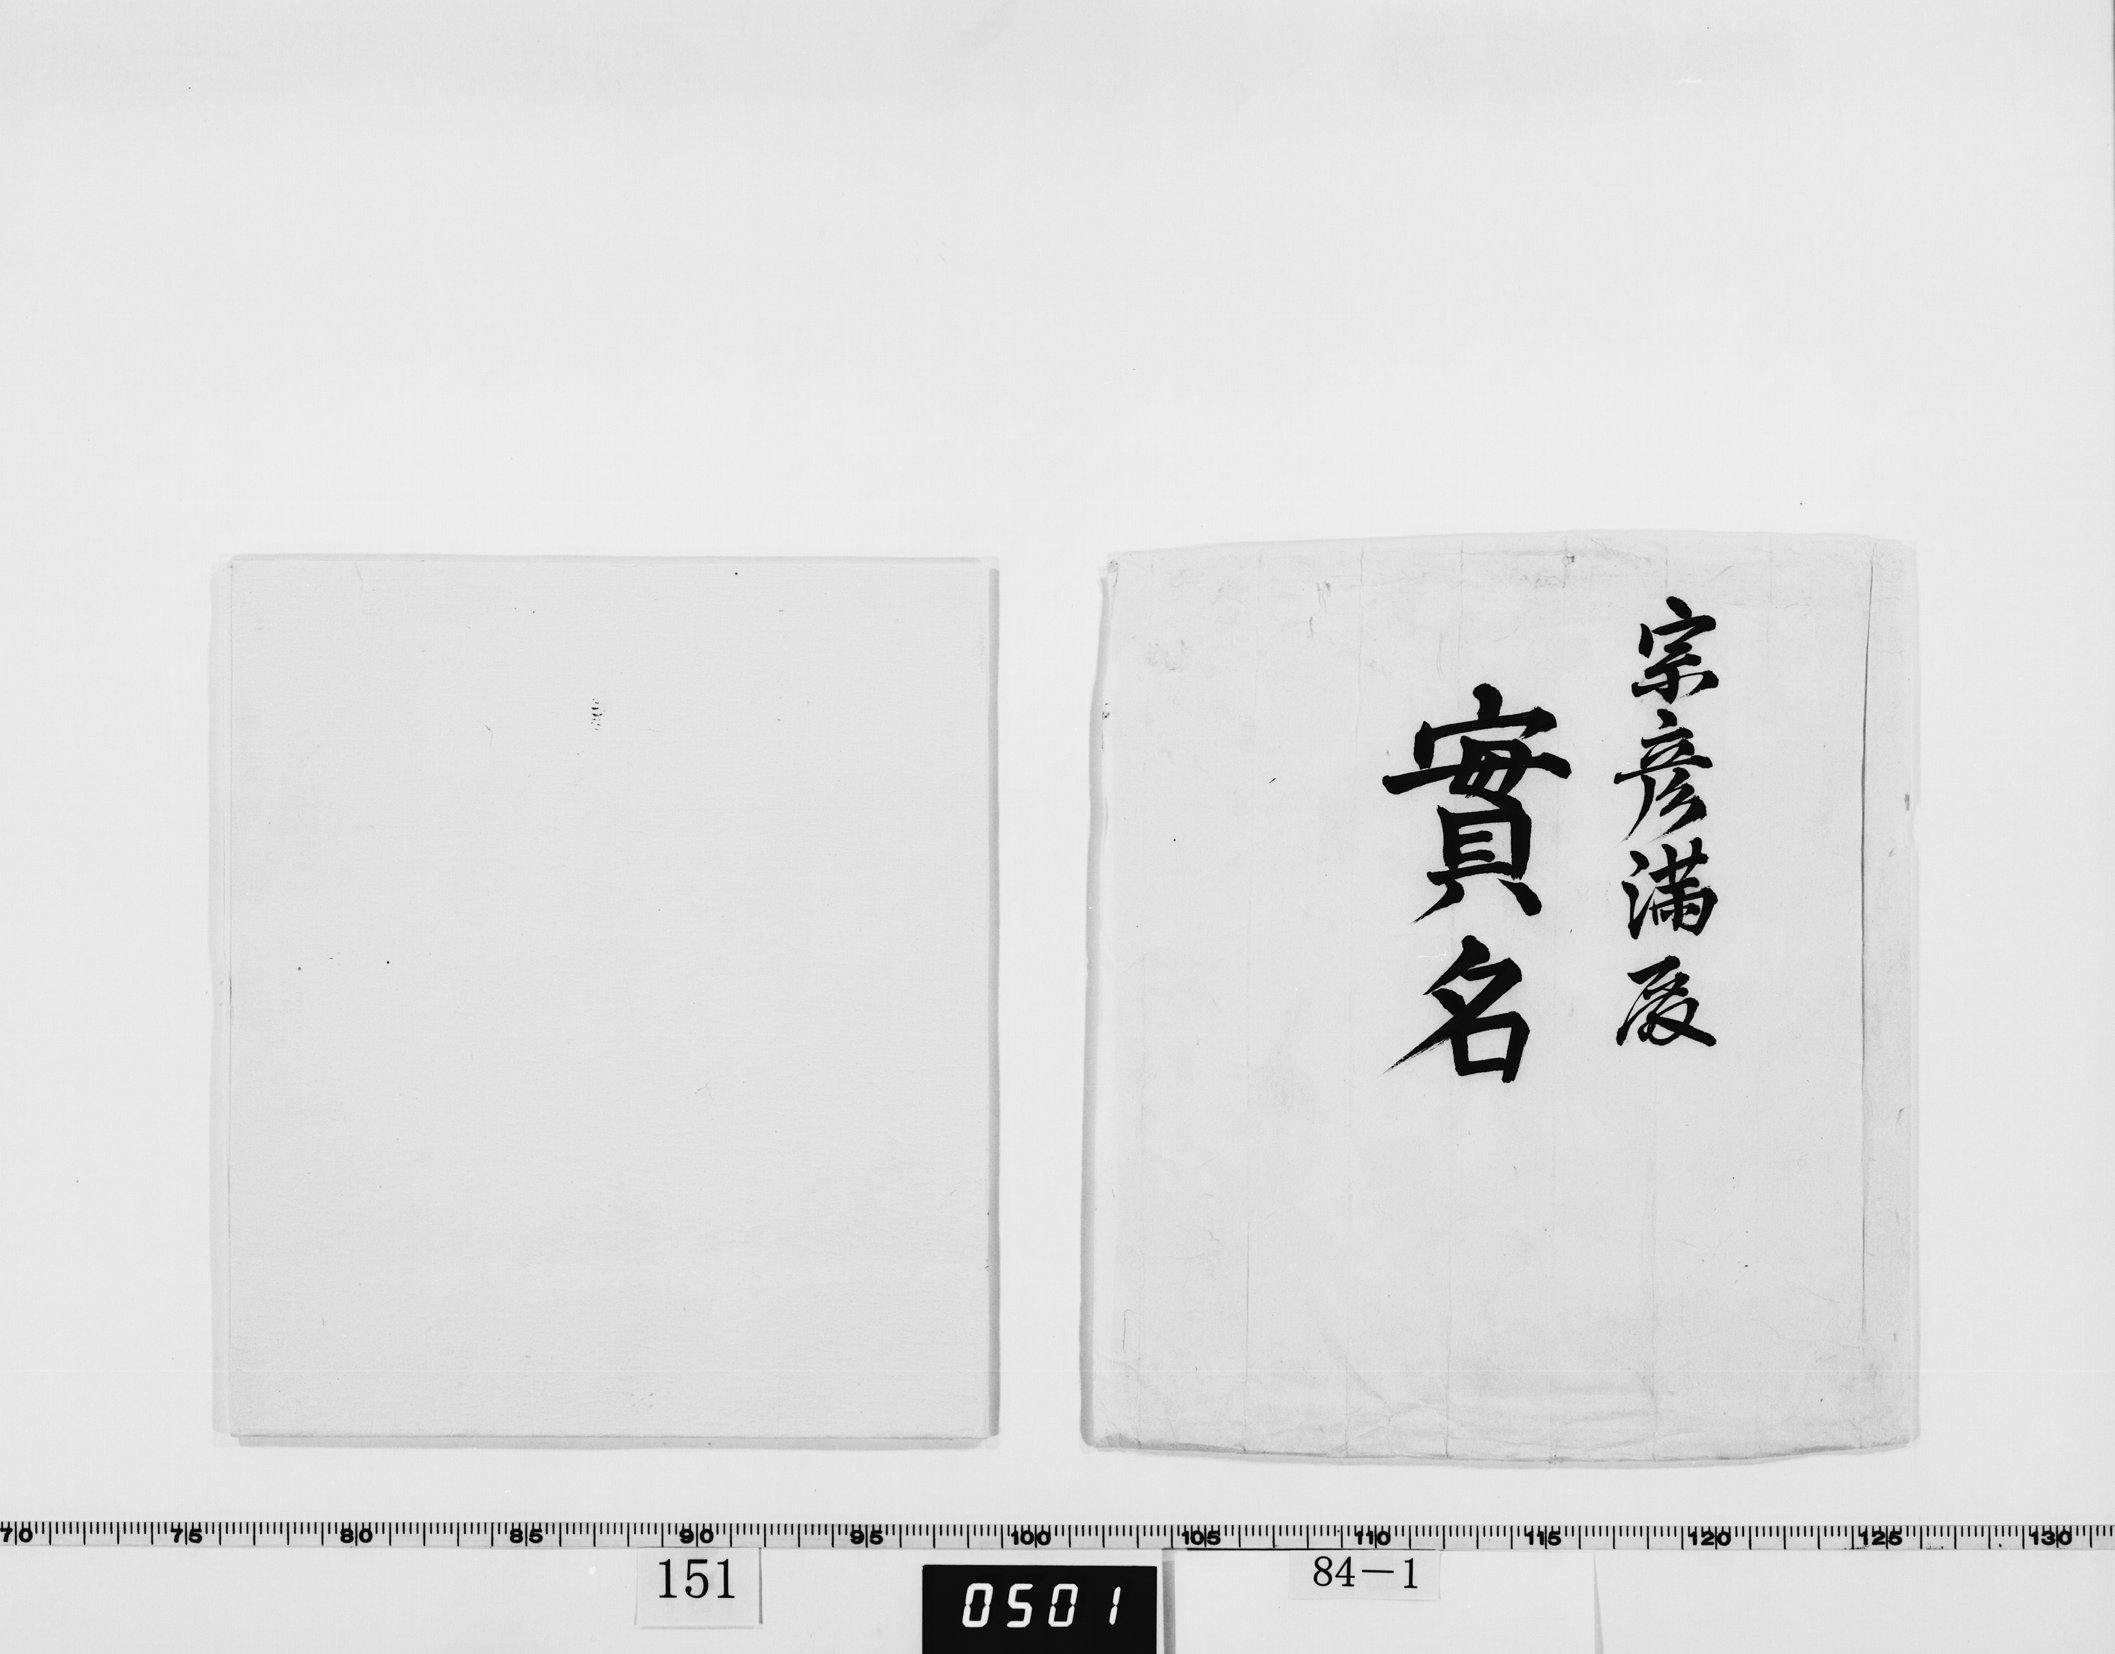 宗彦満殿
實名
70 75 80 85 90 95 100 105 110 115 120 125 130
151
0501
84-1